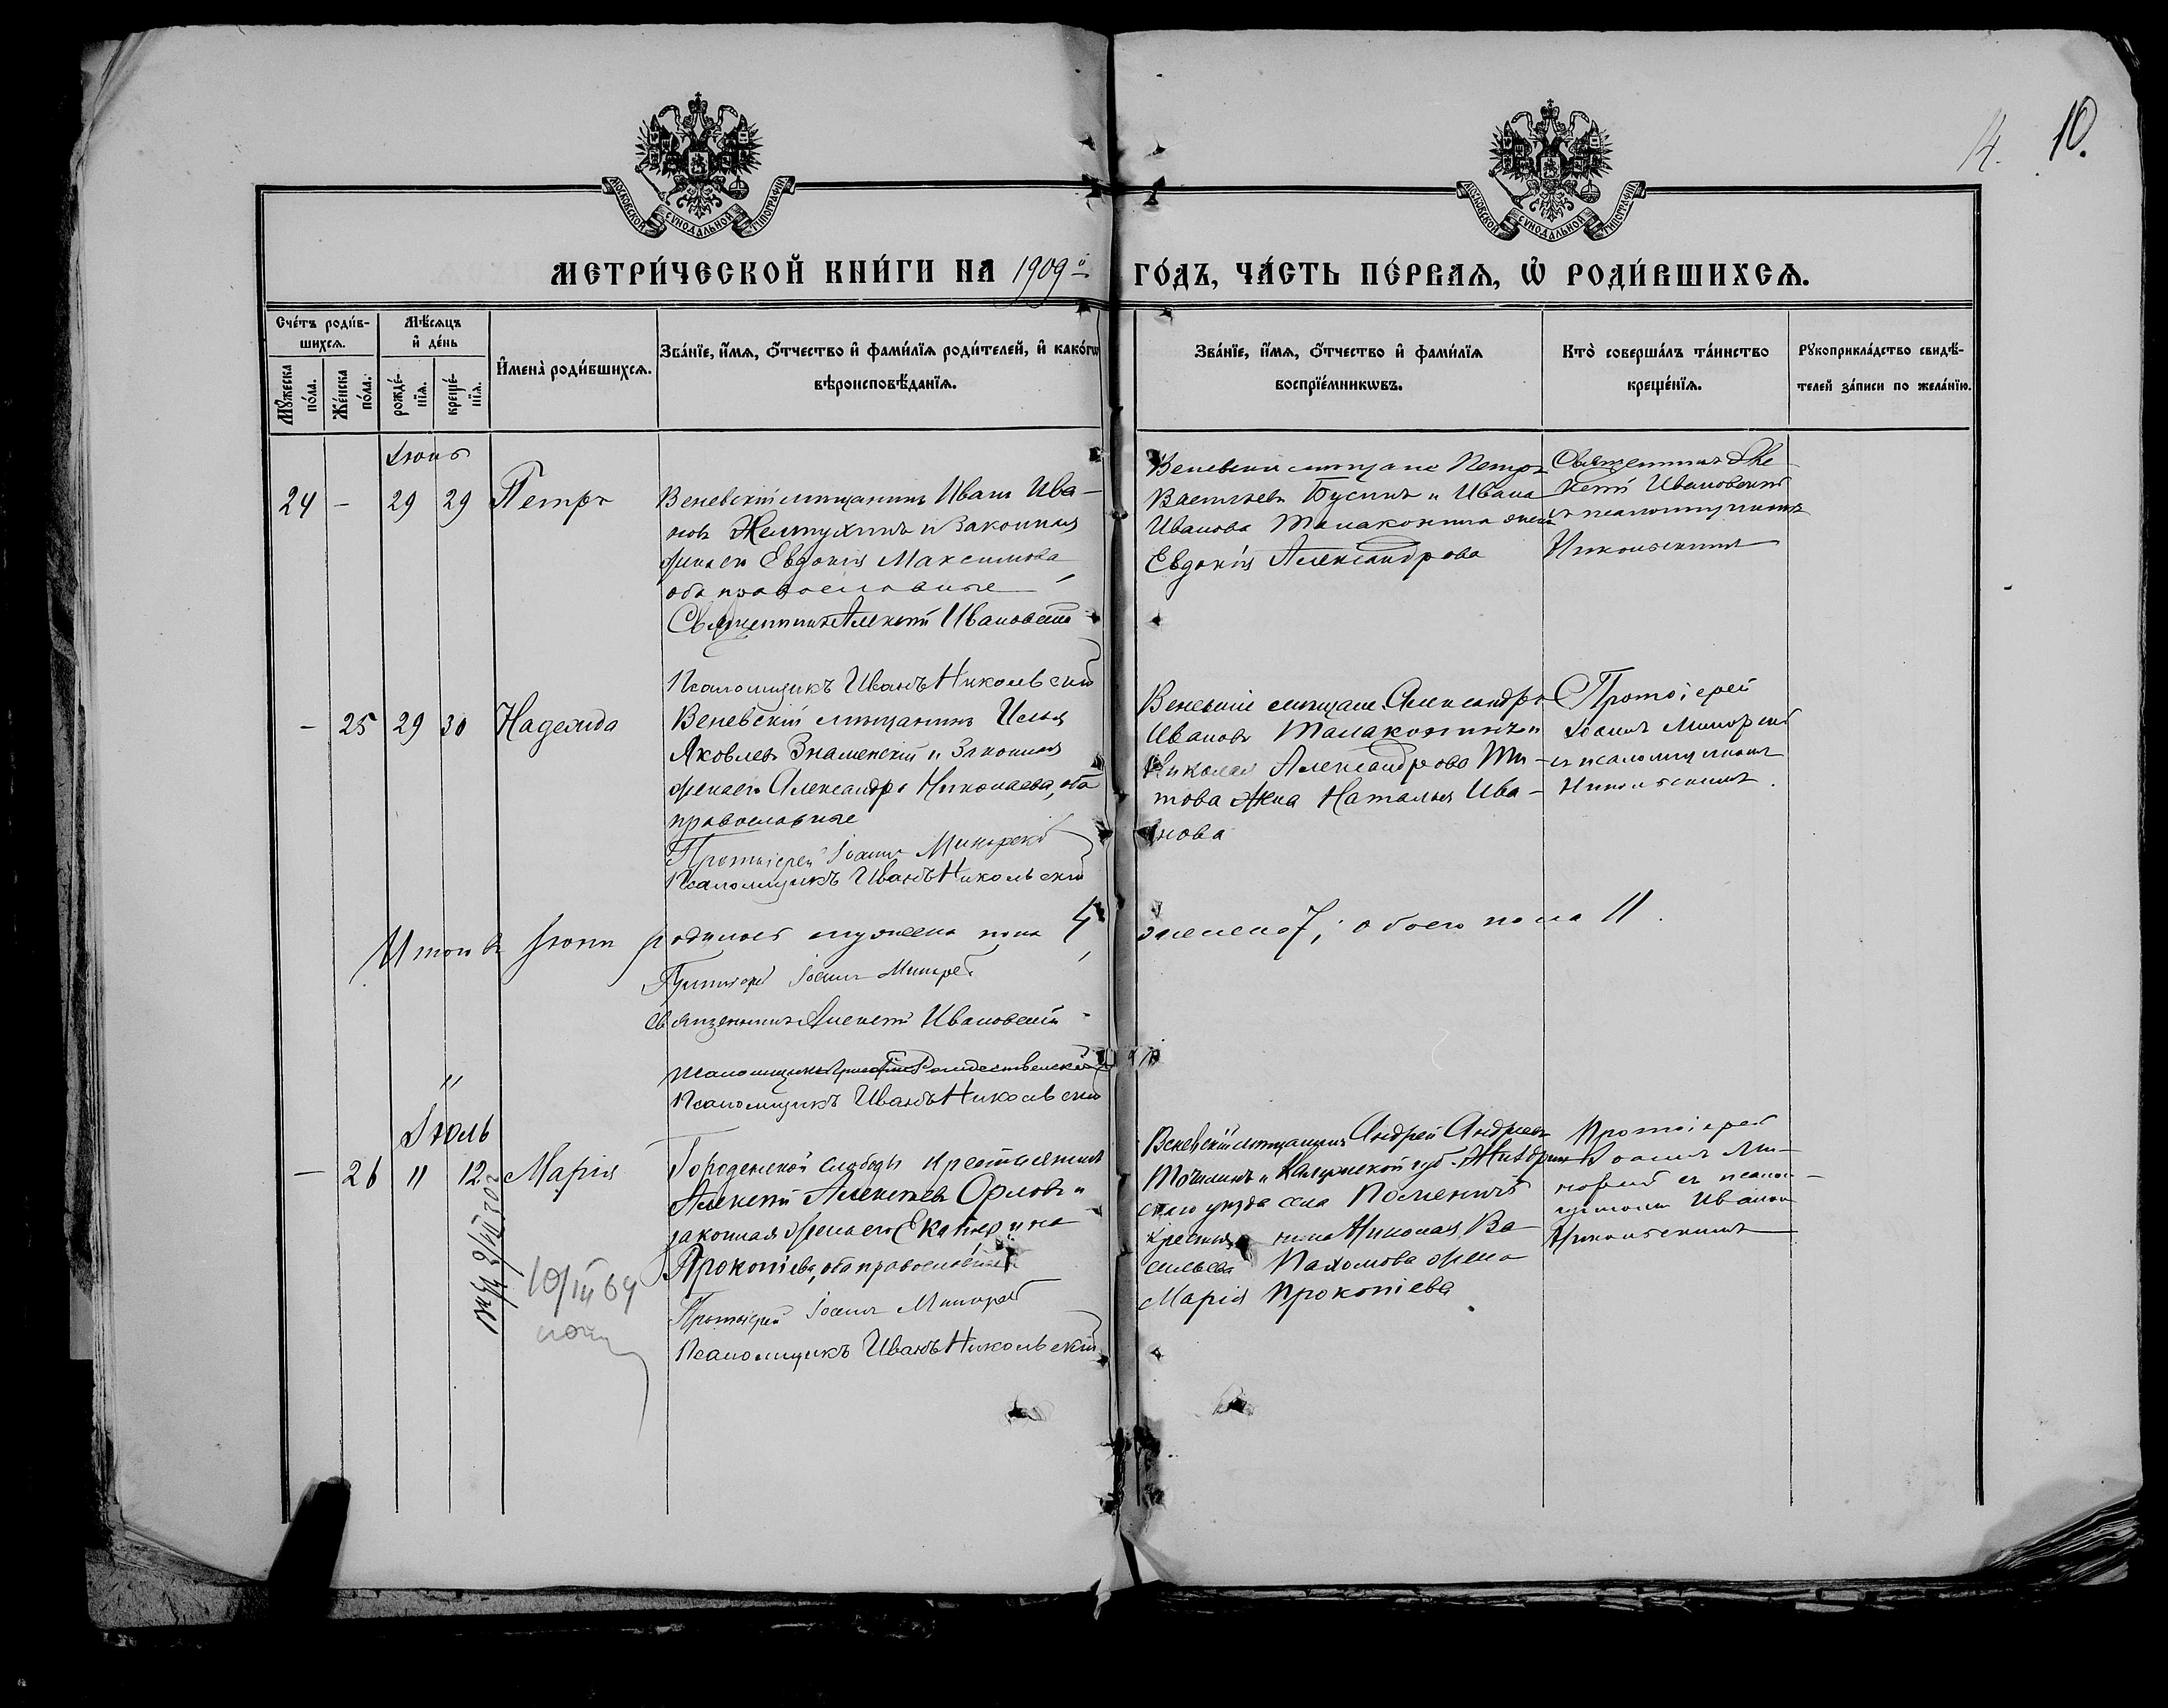 14. 10.
МОСКОВСКОЙ СУНОДАЛЬНОЙ ТИПОГРАФИИ
МОСКОВСКОЙ СУНОДАЛЬНОЙ ТИПОГРАФИИ
МЕТРИ́ЧЕСКОЙ КНИ́ГИ НА 1909 й ГО́ДЪ, ЧА́СТЬ ПЕ́РВАѦ, Ѡ҆ РОДИ́ВШИХСѦ.
Сче́тъ роди́в-
шихсѧ.
Мꙋ́жеска
по́ла.
Же́нска
по́ла.
Мѣ́сѧцъ
и҆ де́нь
рожде́-
нїѧ.
креще́-
нїѧ.
И҆мена̀ роди́вшихсѧ.
Зва́нїе, и҆́мѧ, ѻ҆́тчество и҆ фами́лїѧ роди́телей, и҆ како́гѡ
вѣроисповѣ́данїѧ.
Зва́нїе, и҆́мѧ, ѻ҆́тчество и҆ фами́лїѧ
воспрїе́мникѡвъ.
Кто̀ соверша́лъ та́инство
креще́нїѧ.
Рꙋкоприкла́дство свидѣ́-
телей за́писи по жела́нїю.
Іюнь
24 - 29 29 Петръ
Веневскій мѣщанинъ Иванъ Ива-
новъ Желтухинъ и законная
жена его Евдокія Максимова
оба православные
Священникъ Алексѣй Ивановскій
Псаломщикъ Иванъ Никольскій
Веневскіе мѣщане Петръ
Васильевъ Бусинъ и Ивана
Иванова жена
Евдокія Александрова
Священникъ Але
ксѣй Ивановскій
съ псаломщикомъ
Никольскимъ
- 25 29 30 Надежда
Веневскій мѣщанинъ Илья
Яковлевъ Знаменскій и законная
жена его Александра Николаева, оба
православные
Протоіерей Іоаннъ
Псаломщикъ Иванъ Никольскій
Веневскіе мѣщане Александръ
Ивановъ и
Николая Александрова Ти-
това жена Наталья Ива-
нова
Протоіерей
Іоаннъ
съ псаломщикомъ
Никольскимъ.
Итого въ Іюнѣ родилось мужеска пола 4, женска 7, обоего пола 11.
Протоіерей Іоаннъ
Священникъ Алексѣй Ивановскій
Псаломщикъ Рождественскій
Псаломщикъ Иванъ Никольскій
"
Іюль
- 26 " 12 Марія
Городенской слободы крестьянинъ
Алексѣй Алексѣевъ Орловъ и
законная жена его Екатерина
Прокопіева, оба православные
Протоіерей Іоаннъ
Псаломщикъ Иванъ Никольскій
Веневскій мѣщанинъ Андрей Андреевъ
и Калужской губ. Жиздрин-
скаго уѣзда села
крестьянина Николая Ва
сильева Пахомова жена
Марія Прокопіева
Протоіерей
Іоаннъ
съ псалом-
щикомъ Иваномъ
Никольскимъ
10/III 64